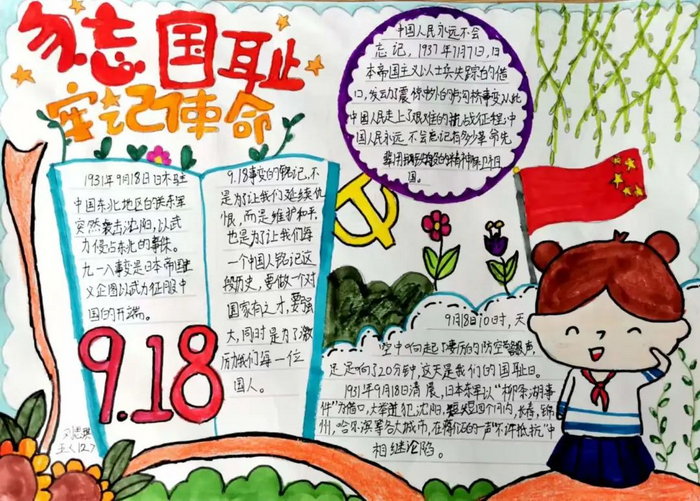 勿忘国耻
牢记使命
中国人民永远不会
忘记，1937年7月7日，日
本帝国主义以士兵失踪为借
口，发动了震惊中外的卢沟桥事变，从此
中国人民走上了艰难的抗战征程，中
国人民永远不会忘记有多少革命先
国。
1931年9月18日日本驻
中国东北地区的关东军
突然袭击沈阳，以武
力侵占东北的事件。
九一八事变是日本帝国主
义企图以武力征服中
国的开端。
9.18
9.18事变的铭记，不
是为了让我们延续仇
恨，而是维护和平，
也是为了让我们每
一个中国人铭记这
段历史，要做一个对
国家有之才，要强
大，同时是为了激
励我们每一位
国人。
9月18日10时，天
空中响起了凄厉的防空警报声，
足足响了20分钟，这天是我们的国耻日。
1931年9月18日清晨，日本东军以“柳条湖事
件”为借口，大举进犯沈阳，短短四个月内，长春，锦
州，哈尔滨等各大城市，在蒋介石的一声“不许抵抗”中
相继沦陷。